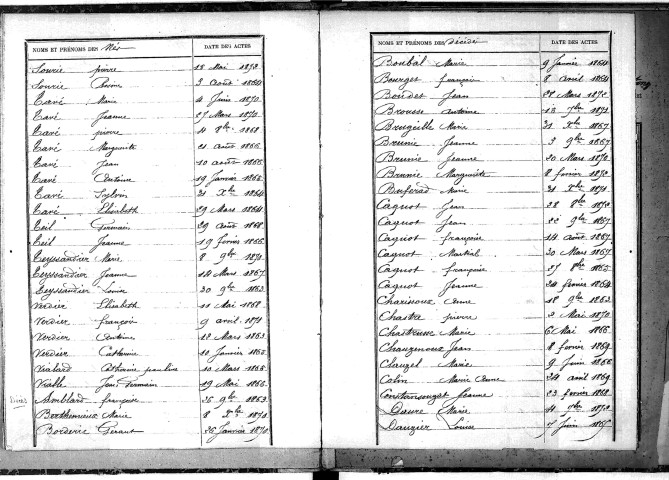 NOMS ET PRÉNOMS DES Nés DATE DES ACTES
Sourie pierre 18 Mai 1873
Sourie 3 août 1864
Tavé Marie 4 Juin 1870
Tavé Jeanne 27 Mars 1871
Tavé pierre 4 8bre 1868
Tavé Marguerite 21 août 1866
Tavé Jean 10 août 1866
Tavé Antoine 19 Janvier 1866
Tavé Sylvain 21 Xbre 1864
Tavé Elisabeth 29 Mars 1864
Teil Germain 29 août 1868
Teil Jeanne 19 fevrier 1866
Teyssandier Marie 8 9bre 1871
Teyssandier Jeanne 14 Mars 1867
Teyssandier Louise 30 9bre 1863
Verdier Elisabeth 11 Mai 1868
Verdier françois 9 avril 1871
Verdier Antoine 12 Mars 1863
Verdier Catherine 10 Janvier 1865
Vialard Catherine pauline 10 Mars 1866
Vialle Jean Germain 19 Mai 1866
Amblard françoise 25 9bre 1863
Berthemieux Marie 8 Xbre 1871
Borderie Géraud 26 Janvier 1870
NOMS ET PRÉNOMS DES Décédés DATE DES ACTES
Boubal Marie 9 Janvier 1864
Bourget françois 8 avril 1864
Boudet Jean 28 Mars 1872
Brousse Antoine 13 7bre 1871
Brugeille Marie 31 Xbre 1867
Brunie Jeanne 3 9bre 1867
Brunie Jeanne 20 Mars 1870
Brunie Marguerite 8 fevrier 1872
Marie 21 Xbre 1871
Cagnot Jean 28 8bre 1872
Cagnot Jean 22 9bre 1867
Cagnot françoise 14 août 1867
Cagnot Martial 30 Mars 1867
Cagnot françoise 27 8bre 1865
Cagnot Jeanne 24 fevrier 1864
Charissoux Anne 18 9bre 1863
Chastre pierre 2 Mai 1870
Chastrusse Marie 6 Mai 1866
Chauzenoux Jean 8 fevrier 1869
Chauzel Marie 9 Juin 1866
Colin Marie Anne 24 avril 1869
Constansouzet Jeanne 23 fevrier 1868
Daure Marie 14 9bre 1872
Dauzier Louise 7 Juin 1865